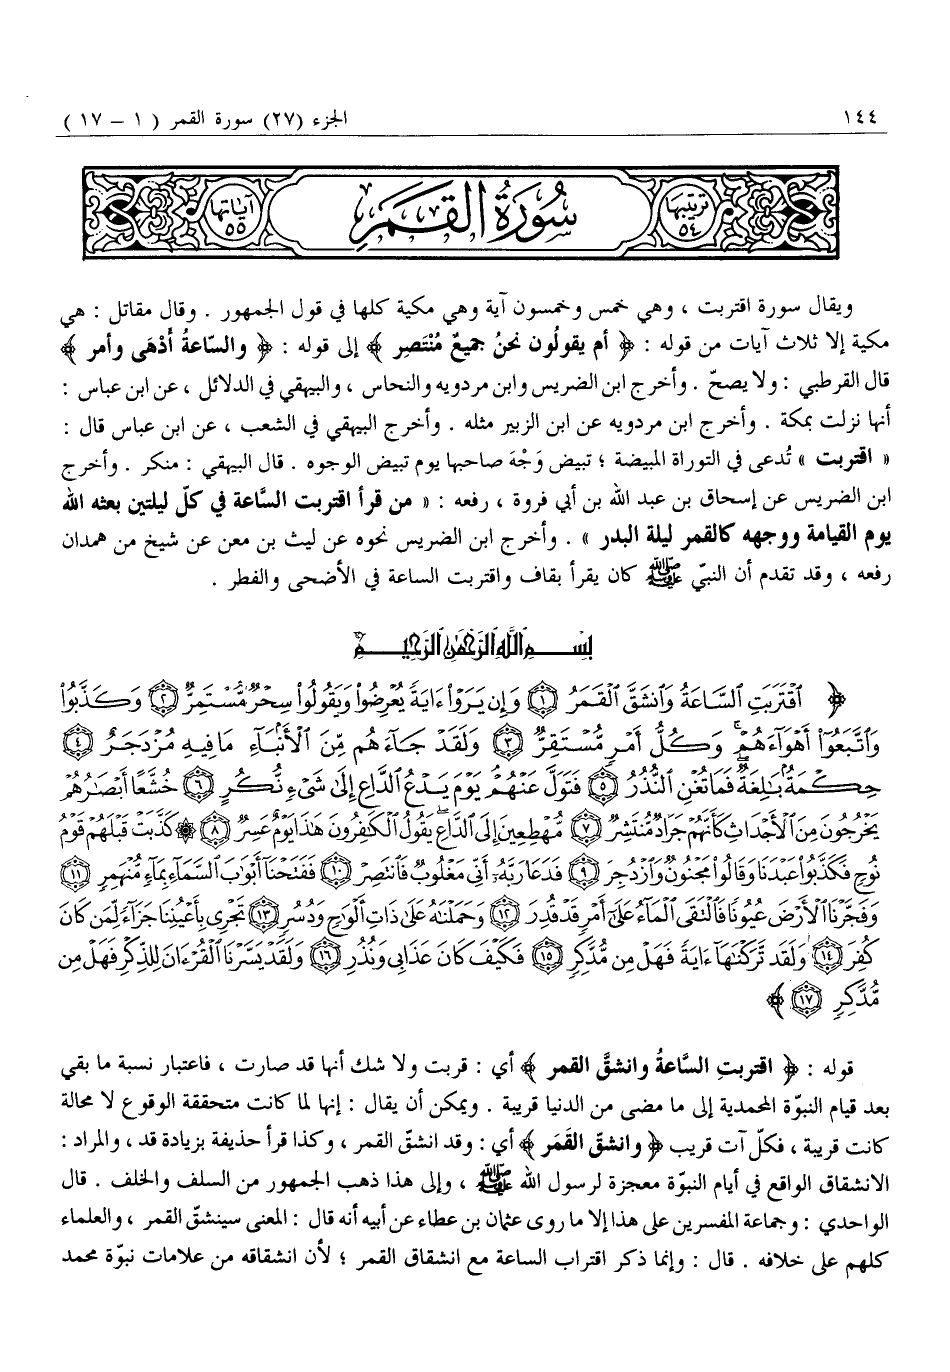 ١٤٤ الجزء (٢٧) سورة القمر ( ١ – ١٧ )
ترتيبها ٥٤ سُورَةُ القَمَرِ آياتها ٥٥
ويقال سورة اقتربت ، وهي خمس وخمسون آية وهي مكية كلها في قول الجمهور . وقال مقاتل : هي
مكية إلا ثلاث آيات من قوله : ﴿ أم يقولُون نحنُ جميعٌ مُنْتَصِر ﴾ إلى قوله : ﴿ والسّاعةُ أَدْهَى وأمر ﴾
قال القرطبي : ولا يصحّ . وأخرج ابن الضريس وابن مردويه والنحاس ، والبيهقي في الدلائل ، عن ابن عباس :
أنها نزلت بمكة . وأخرج ابن مردويه عن ابن الزبير مثله . وأخرج البيهقي في الشعب ، عن ابن عباس قال :
« اقتربت » تُدعى في التوراة المبيضة ؛ تبيض وَجْهَ صاحبها يوم تبيض الوجوه . قال البيهقي : منكر . وأخرج
ابن الضريس عن إسحاق بن عبد الله بن أبي فروة ، رفعه : « من قرأ اقتربت السَّاعة في كلّ ليلتين بعثه الله
يوم القيامة ووجهه كالقمر ليلة البدر » . وأخرج ابن الضريس نحوه عن ليث بن معن عن شيخ من همدان
رفعه ، وقد تقدم أن النبيّ ﷺ كان يقرأ بقاف واقتربت الساعة في الأضحى والفطر .
بِسْمِ اللَّهِ الرَّحْمَٰنِ الرَّحِيمِ
﴿ ٱقْتَرَبَتِ ٱلسَّاعَةُ وَٱنشَقَّ ٱلْقَمَرُ ١ وَإِن يَرَوْا۟ ءَايَةً يُعْرِضُوا۟ وَيَقُولُوا۟ سِحْرٌ مُّسْتَمِرٌّ ٢ وَكَذَّبُوا۟
وَٱتَّبَعُوٓا۟ أَهْوَآءَهُمْ ۚ وَكُلُّ أَمْرٍ مُّسْتَقِرٌّ ٣ وَلَقَدْ جَآءَهُم مِّنَ ٱلْأَنۢبَآءِ مَا فِيهِ مُزْدَجَرٌ ٤
حِكْمَةٌۢ بَٰلِغَةٌ ۖ فَمَا تُغْنِ ٱلنُّذُرُ ٥ فَتَوَلَّ عَنْهُمْ ۘ يَوْمَ يَدْعُ ٱلدَّاعِ إِلَىٰ شَىْءٍ نُّكُرٍ ٦ خُشَّعًا أَبْصَٰرُهُمْ
يَخْرُجُونَ مِنَ ٱلْأَجْدَاثِ كَأَنَّهُمْ جَرَادٌ مُّنتَشِرٌ ٧ مُّهْطِعِينَ إِلَى ٱلدَّاعِ ۖ يَقُولُ ٱلْكَٰفِرُونَ هَٰذَا يَوْمٌ عَسِرٌ ٨ ۞ كَذَّبَتْ قَبْلَهُمْ قَوْمُ
نُوحٍ فَكَذَّبُوا۟ عَبْدَنَا وَقَالُوا۟ مَجْنُونٌ وَٱزْدُجِرَ ٩ فَدَعَا رَبَّهُۥٓ أَنِّى مَغْلُوبٌ فَٱنتَصِرْ ١٠ فَفَتَحْنَآ أَبْوَٰبَ ٱلسَّمَآءِ بِمَآءٍ مُّنْهَمِرٍ ١١
وَفَجَّرْنَا ٱلْأَرْضَ عُيُونًا فَٱلْتَقَى ٱلْمَآءُ عَلَىٰٓ أَمْرٍ قَدْ قُدِرَ ١٢ وَحَمَلْنَٰهُ عَلَىٰ ذَاتِ أَلْوَٰحٍ وَدُسُرٍ ١٣ تَجْرِى بِأَعْيُنِنَا جَزَآءً لِّمَن كَانَ
كُفِرَ ١٤ وَلَقَد تَّرَكْنَٰهَآ ءَايَةً فَهَلْ مِن مُّدَّكِرٍ ١٥ فَكَيْفَ كَانَ عَذَابِى وَنُذُرِ ١٦ وَلَقَدْ يَسَّرْنَا ٱلْقُرْءَانَ لِلذِّكْرِ فَهَلْ مِن
مُّدَّكِرٍ ١٧ ﴾
قوله : ﴿ اقتربتِ السَّاعةُ وانشقَّ القمر ﴾ أي : قربت ولا شك أنها قد صارت ، فاعتبار نسبة ما بقي
بعد قيام النبوّة المحمدية إلى ما مضى من الدنيا قريبة . ويمكن أن يقال : إنها لما كانت متحققة الوقوع لا محالة
كانت قريبة ، فكلّ آت قريب ﴿ وانشقّ القَمَر ﴾ أي : وقد انشقّ القمر ، وكذا قرأ حذيفة بزيادة قد ، والمراد :
الانشقاق الواقع في أيام النبوّة معجزة لرسول الله ﷺ ، وإلى هذا ذهب الجمهور من السلف والخلف . قال
الواحدي : وجماعة المفسرين على هذا إلا ما روى عثمان بن عطاء عن أبيه أنه قال : المعنى سينشقّ القمر ، والعلماء
كلهم على خلافه . قال : وإنما ذكر اقتراب الساعة مع انشقاق القمر ؛ لأن انشقاقه من علامات نبوّة محمد